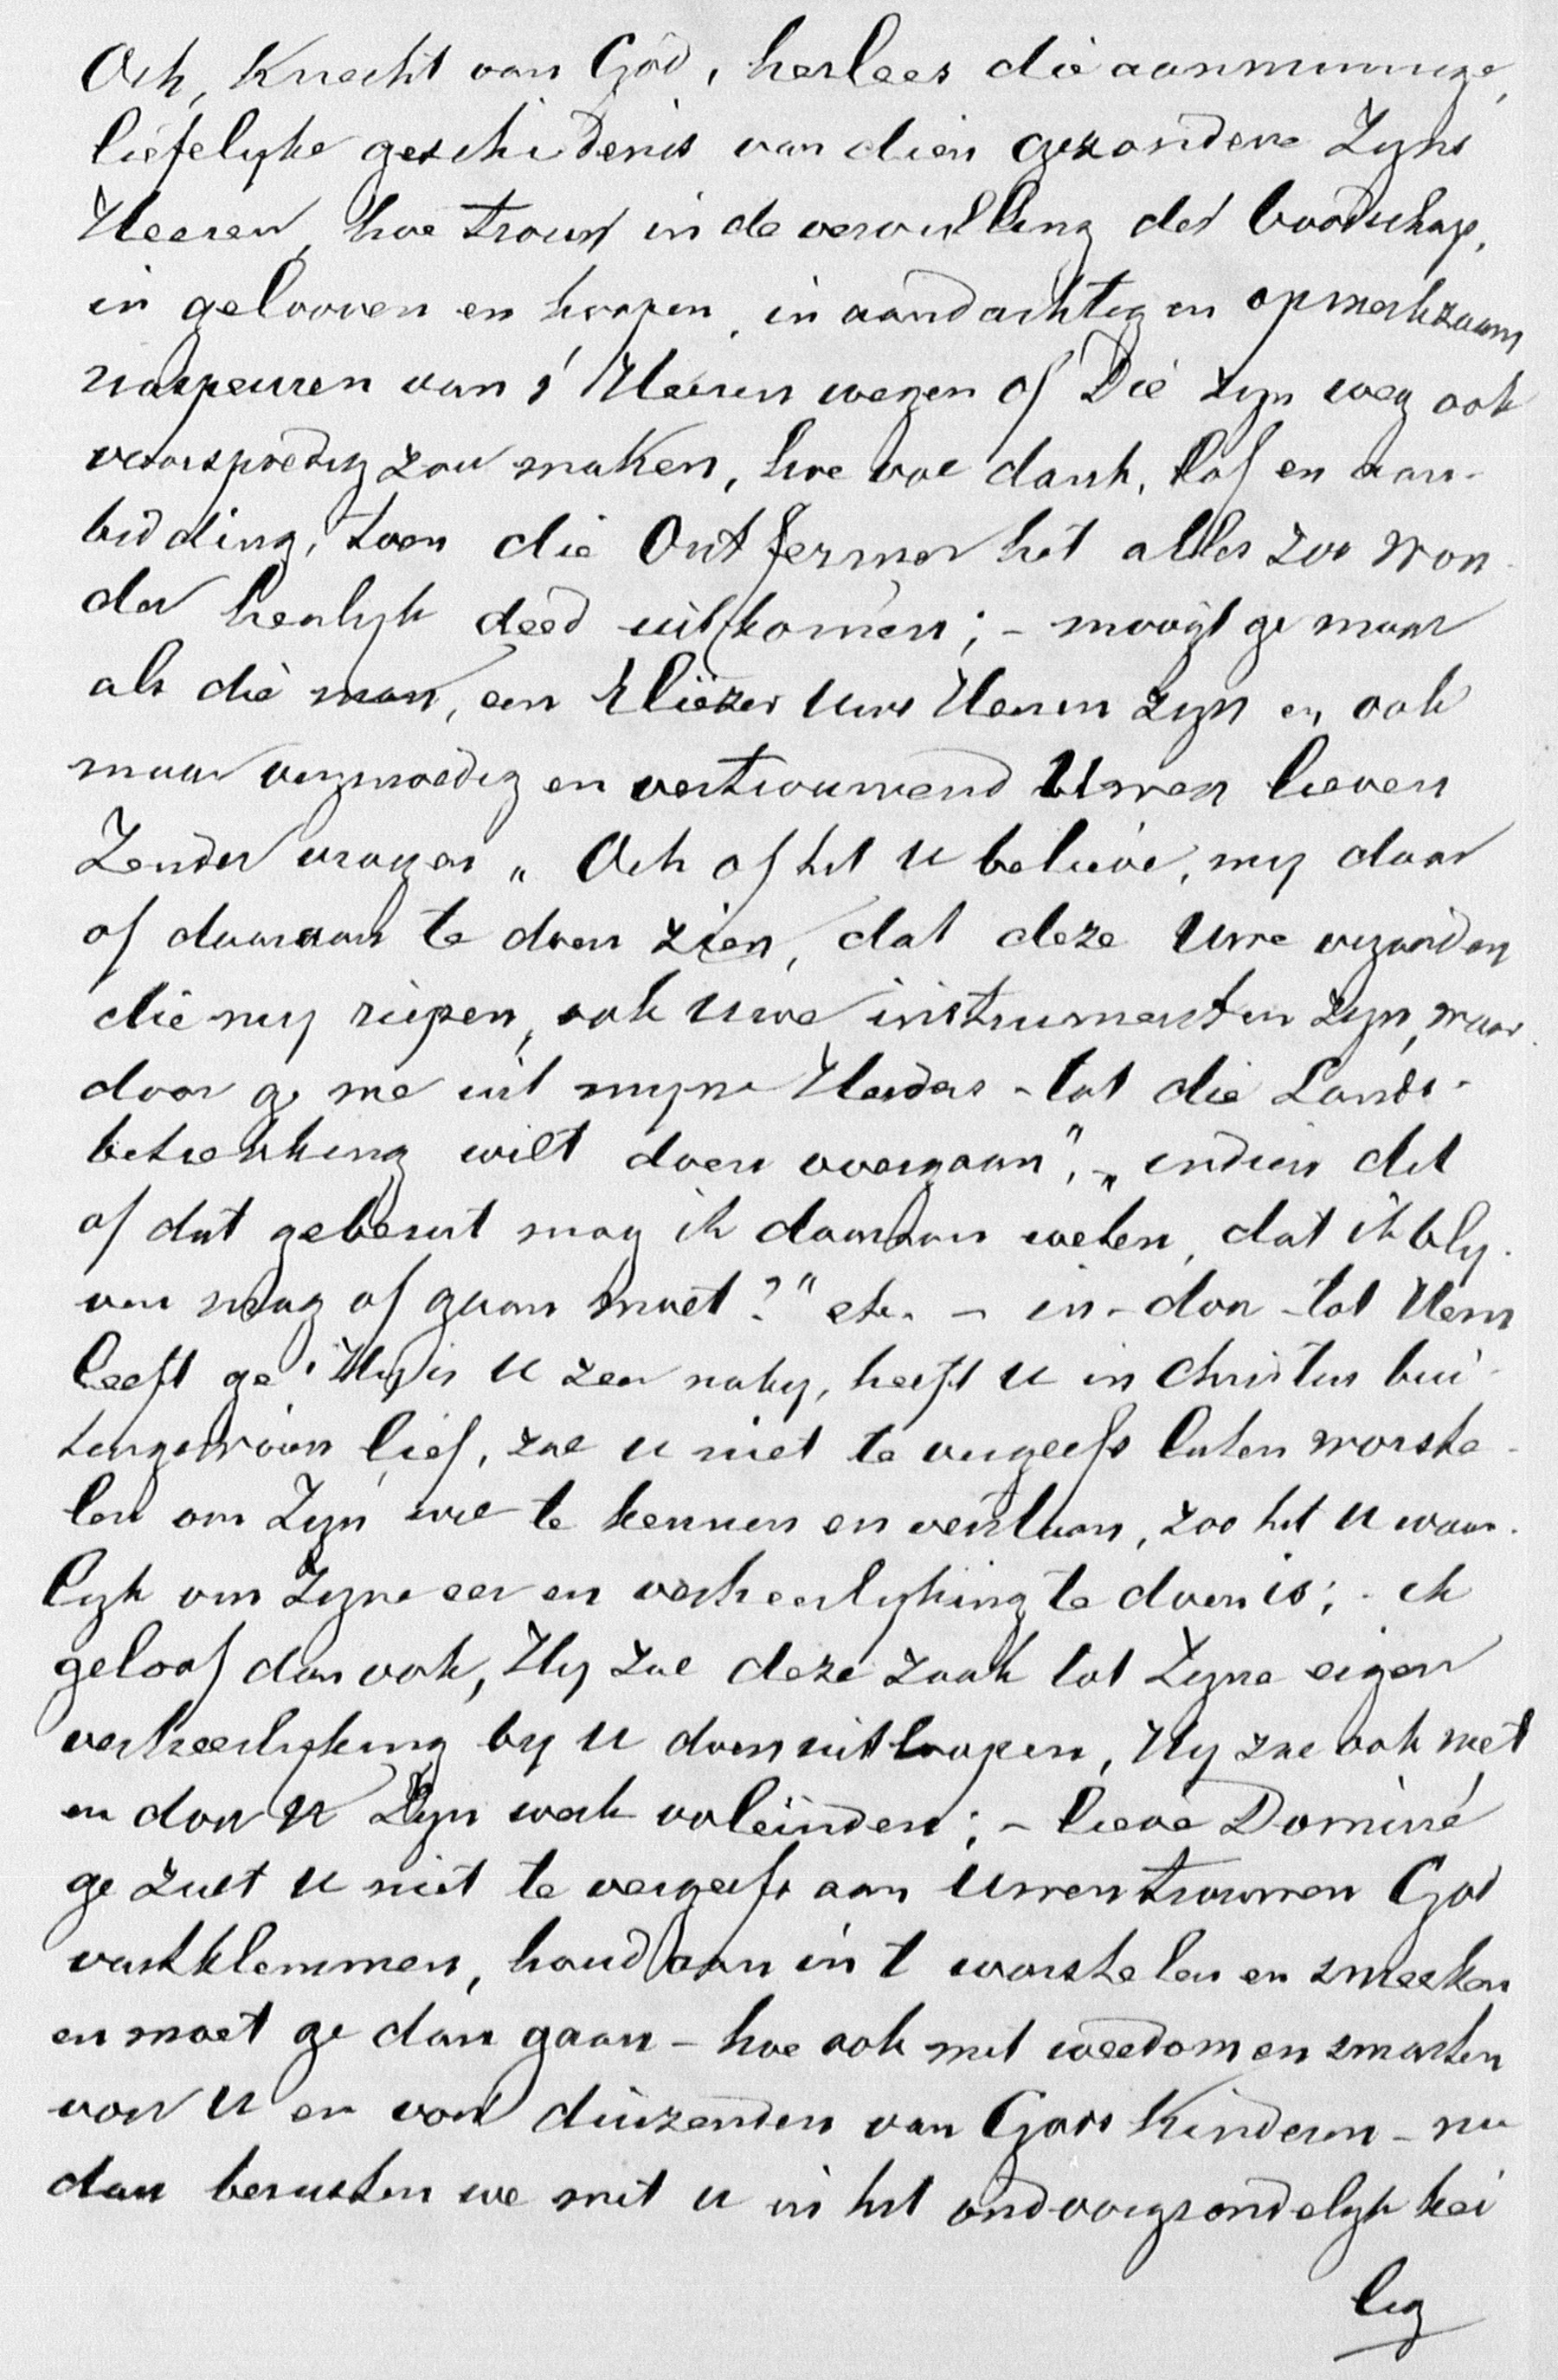 Och, Knecht van God, herlees die aanminnige,
liefelyke geschiedenis van dien gezondene Zyns
Heeren, hoe trouw in de vervulling der boodschap,
in gelooven en hoopen, in aandachtig en opmerkzaam
naspeuren van s' Heeren wegen of Die zyn weg ook
voorspoedig zou maken, hoe vol dank, lof en aan-
bidding, toen die Ontfermer het alles zoo won-
der heerlyk deed uitkomen; - moogt ge maar
als die man, een Eliëzer Uws Heeren zyn en ook
maar vrymoedig en vertrouwend Uwen lieven
Zender vragen „ Och of het U believe, my daar
of daaraan te doen zien, dat deze Uwe vrienden
die my riepen, ook Uwe instrumenten zyn, waar-
door ge me uit myne Herders - tot die Lands-
betrekking wilt doen overgaan", „ indien dit
of dat gebeurt mag ik daaraan weten, dat ik bly-
ven mag of gaan moet?" etc. - in - door - tot Hem
leeft ge! Hy is U zeer naby, heeft U in Christus bui-
tengewoon lief, zal U niet te vergeefs laten worste-
len om Zyn wil te kennen en verstaan, zoo het U waar-
lyk om Zyne eer en verheerlyking te doen is; - ik
geloof dan ook, Hy zal deze zaak tot Zyne eigen
verheerlyking by U doen uitloopen, Hy zal ook met
en door U Zyn werk voleinden; - lieve Dominé
ge zult U niet te vergeefs aan Uwen trouwen God
vastklemmen, houd aan in 't worstelen en smeeken
en moet ge dan gaan - hoe ook met weedom en smarten
voor U en voor duizenden van Gods Kinderen - nu
dan berusten we met U in het ondoorgrondelyk hei
lig